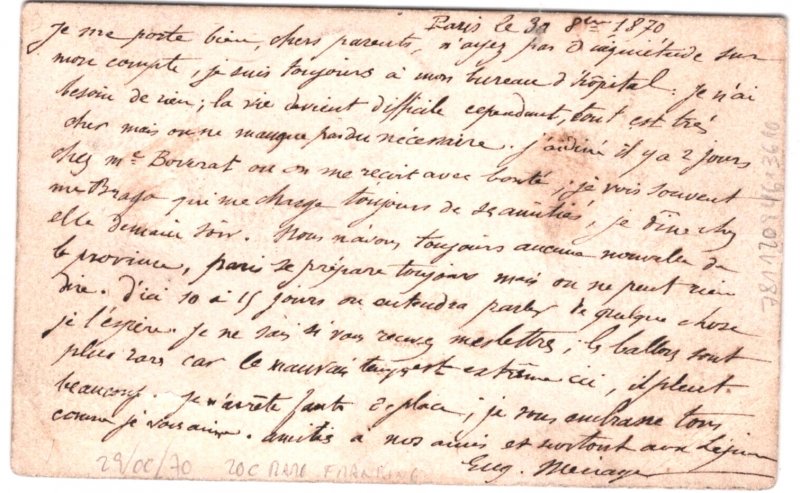 Paris le 30 8bre 1870
Je me porte bien, chers parents, n'ayez pas d'inquiétude sur
mon compte, je suis toujours à mon bureau d'hôpital. Je n'ai
besoin de rien; la vie devient difficile cependant, tout est très
cher mais on ne manque pas du nécessaire. J'ai diné il y a 2 jours
chez me Boverat où on me reçoit avec bonté; je vois souvent
me Braga qui me charge toujours de ses amitiés, je dîne chez
elle demain soir. Nous n'avons toujours aucune nouvelle de
la province, Paris se prépare toujours mais on ne peut rien
dire. D'ici 10 à 15 jours on entendra parler de quelque chose
je l'espère. Je ne sais si vous recevez mes lettres; les ballons sont
plus rares car le mauvais temps est extrême ici, il pleut
beaucoup. Je m'arrête faute de place; je vous embrasse tous
comme je vous aime. amitiés à nos amis et surtout aux
Eug.
29/OC/70 20C RARE FRANKING